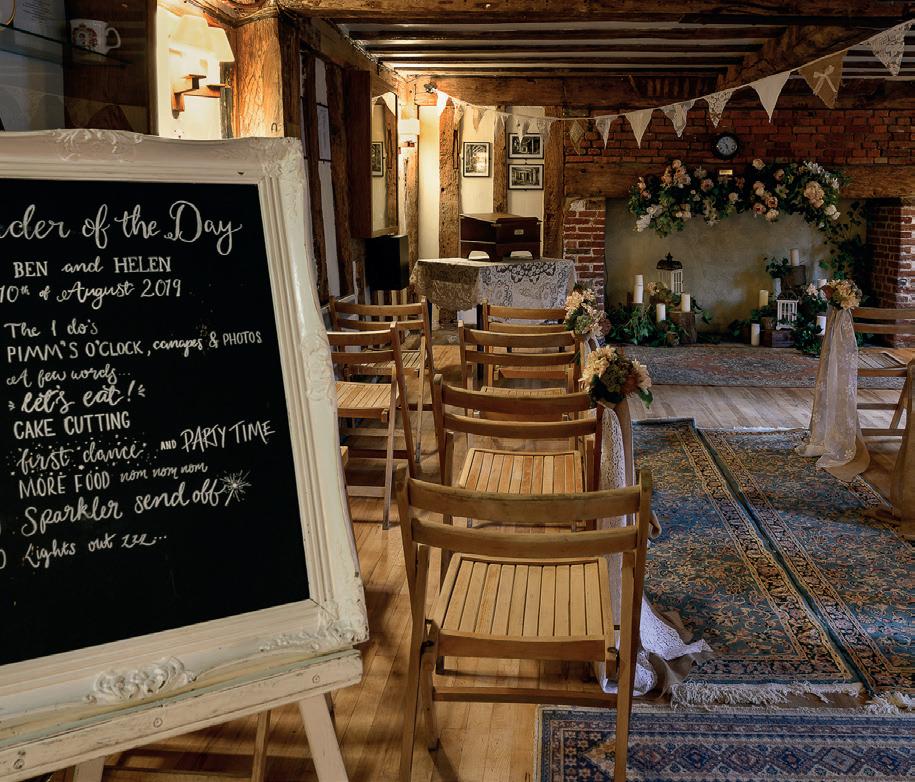 der of the Day
BEN and HELEN
10th of August 2019
The I do's
PIMM'S O'CLOCK, canapes & PHOTOS
A few words...
let's eat!
CAKE CUTTING
first dance AND PARTY TIME
MORE FOOD nom nom nom
Sparkler send off
Lights out zzz...